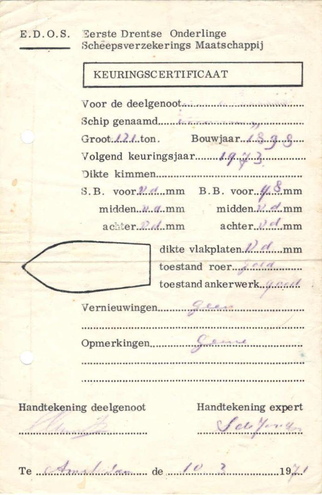 E.D.O.S. Eerste Drentse Onderlinge
Scheepsverzekerings Maatschappij
KEURINGSCERTIFICAAT
Voor de deelgenoot
Schip genaamd
Groot 121 ton. Bouwjaar 1898
Volgend keuringsjaar 1973
Dikte kimmen
S.B. voor v.d mm B.B. voor mm
midden v.d mm midden v.d mm
achter v.d mm achter v.d mm
dikte vlakplaten v.d mm
toestand roer goed
toestand ankerwerk goed
Vernieuwingen geen
Opmerkingen geene
Handtekening deelgenoot Handtekening expert
Te Amsterdam de 10 3 1971